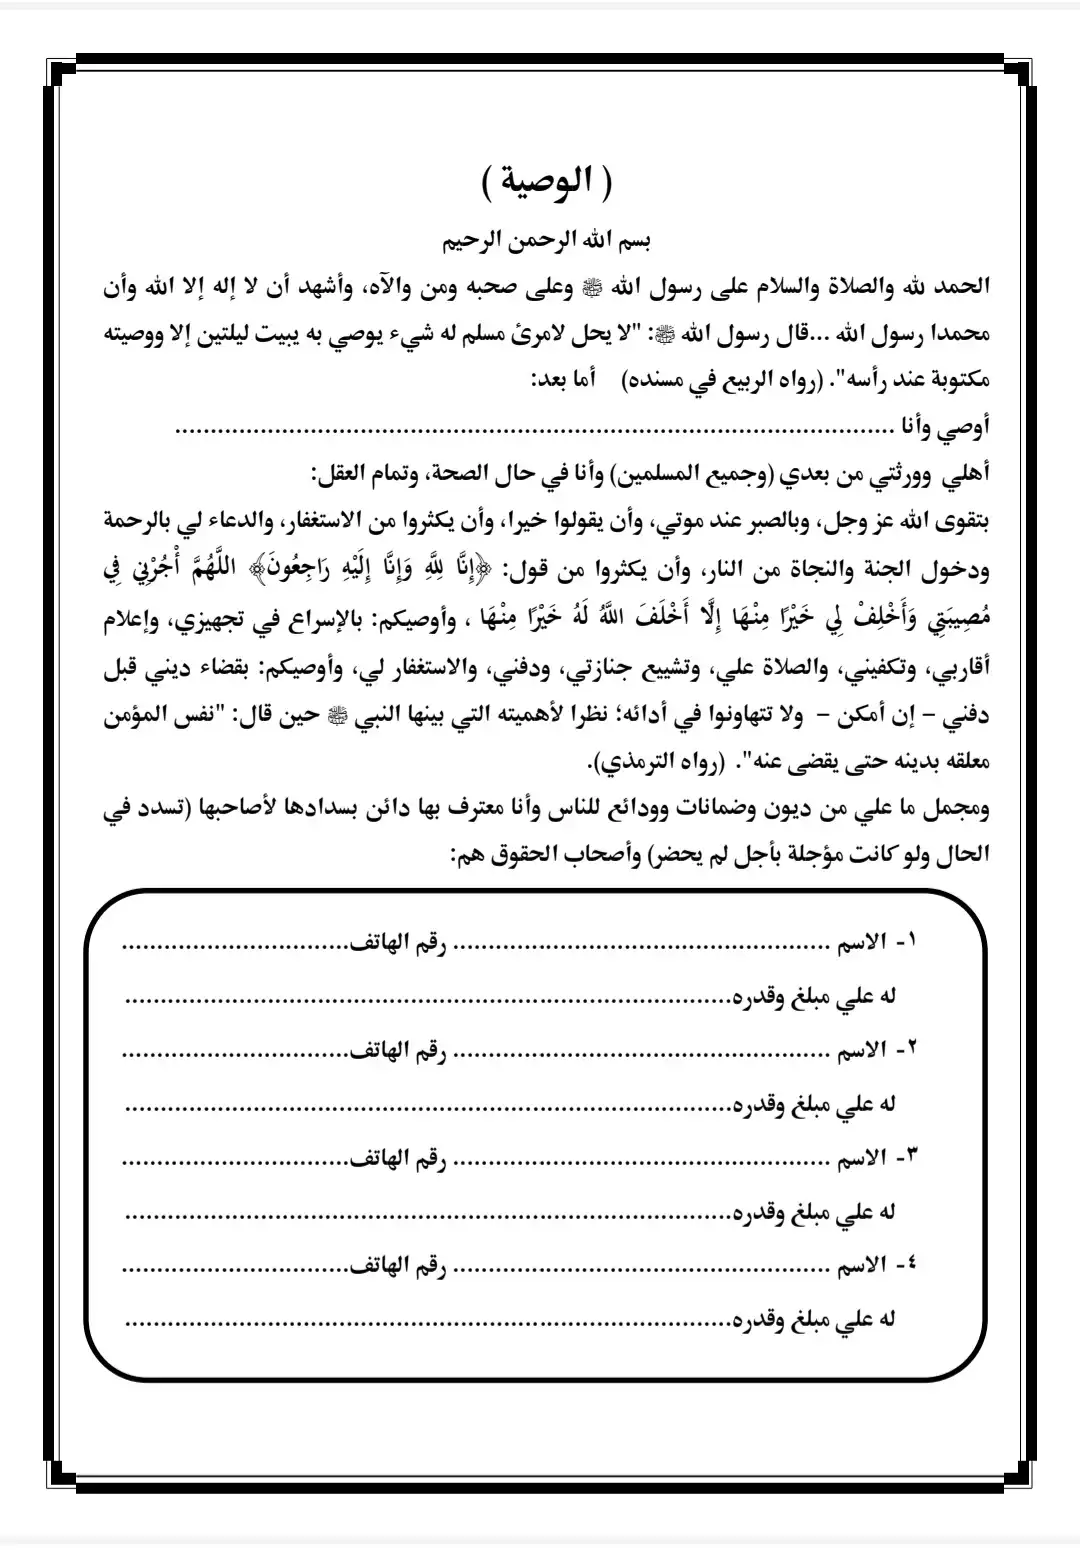 ( الوصية )
بسم الله الرحمن الرحيم
الحمد لله والصلاة والسلام على رسول الله ﷺ وعلى صحبه ومن والآه، وأشهد أن لا إله إلا الله وأن
محمدا رسول الله ...قال رسول الله ﷺ: "لا يحل لامرئ مسلم له شيء يوصي به يبيت ليلتين إلا ووصيته
مكتوبة عند رأسه". (رواه الربيع في مسنده) أما بعد:
أوصي وأنا ....................................................................................................
أهلي وورثتي من بعدي (وجميع المسلمين) وأنا في حال الصحة، وتمام العقل:
بتقوى الله عز وجل، وبالصبر عند موتي، وأن يقولوا خيرا، وأن يكثروا من الاستغفار، والدعاء لي بالرحمة
ودخول الجنة والنجاة من النار، وأن يكثروا من قول: ﴿إِنَّا لِلَّهِ وَإِنَّا إِلَيْهِ رَاجِعُونَ﴾ اللَّهُمَّ أْجُرْنِي فِي
مُصِيبَتِي وَأَخْلِفْ لِي خَيْرًا مِنْهَا إِلَّا أَخْلَفَ اللَّهُ لَهُ خَيْرًا مِنْهَا ، وأوصيكم: بالإسراع في تجهيزي، وإعلام
أقاربي، وتكفيني، والصلاة علي، وتشييع جنازتي، ودفني، والاستغفار لي، وأوصيكم: بقضاء ديني قبل
دفني – إن أمكن – ولا تتهاونوا في أدائه؛ نظرا لأهميته التي بينها النبي ﷺ حين قال: "نفس المؤمن
معلقه بدينه حتى يقضى عنه". (رواه الترمذي).
ومجمل ما علي من ديون وضمانات وودائع للناس وأنا معترف بها دائن بسدادها لأصاحبها (تسدد في
الحال ولو كانت مؤجلة بأجل لم يحضر) وأصحاب الحقوق هم:
١- الاسم ..................................................... رقم الهاتف................................
له علي مبلغ وقدره.....................................................................................
٢- الاسم ..................................................... رقم الهاتف................................
له علي مبلغ وقدره.....................................................................................
٣- الاسم ..................................................... رقم الهاتف................................
له علي مبلغ وقدره.....................................................................................
٤- الاسم ..................................................... رقم الهاتف................................
له علي مبلغ وقدره.....................................................................................